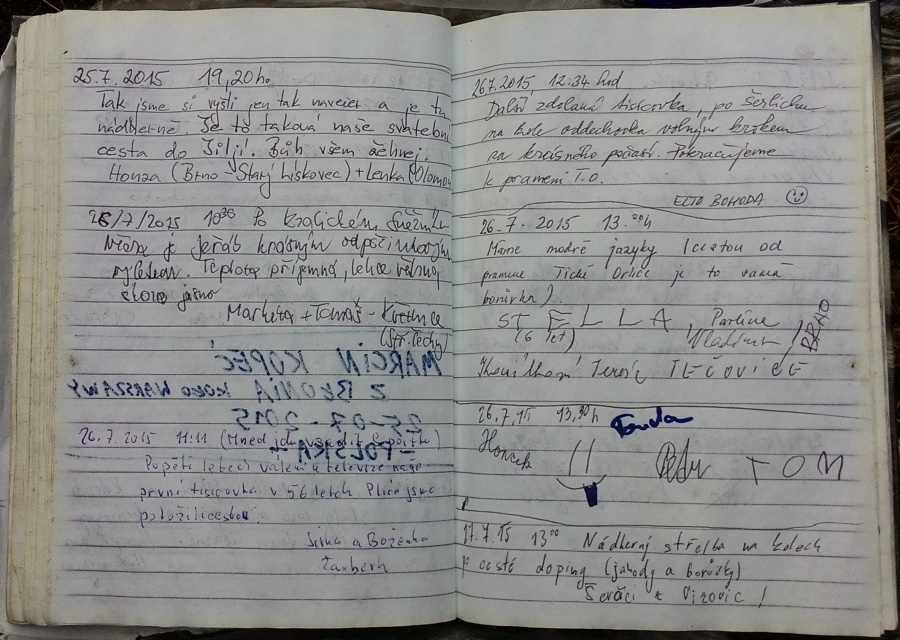 25.7.2015 19,20h.
Tak jsme si vyšli jen tak navečer a je tu
nádherně. Je to taková naše svatební
cesta do Silji. Bůh všem žehnej.
Honza (Brno - Starý Lískovec) + Lenka (Olomou
26/7/2015 10³⁶ Po Králickém Sněžníku
je jeřáb krásným odpočinkovým
výletem. Teplota příjemná, lehce
skoro jasno
Markéta + Tomáš - Květnice
(Stř. Čechy)
MARCIN KOPEĆ
Z BŁONIA KOŁO WARSZAWY
25-07-2015
- POLSKA -
26.7.2015 11:11 (Hned jdu
Popáté letos válení u televize naše
první tisícovka v 56 letech. Plíce jsme
položili cestou.
Jirka a Boženka
Žamberk
26.7.2015, 12:34 hod
Další zdolaná tisícovka, po Šerlichu
na kole oddechovka volným krokem
za krásného počasí. Pokračujeme
k prameni T.O.
BOHODA
26.7.2015 13.⁰⁰h
Máme modré jazyky (cestou od
pramene Tiché Orlice je to samá
borůvka).
STELLA, Pavlína
(6 let) Vladimír
TEČOVICE
26.7.15 13,30h
Honzík Petr TOM
27.7.15 13⁰⁰ Nádherná střelba na kolech
po cestě doping (jahody a borůvky)
Ševčáci z Vizovic!